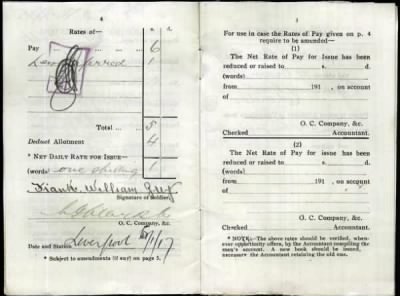 4
Rates of—
s. d.
Pay 6
1
Total ... 5
Deduct Allotment 4
* NET DAILY RATE FOR ISSUE— 1
(words) one shilling
Frank William Guy
Signature of Soldier.
O. C. Company, &c.
Date and Station Liverpool /1/17
* Subject to amendments (if any) on page 5.
5
For use in case the Rates of Pay given on p. 4
require to be amended—
(1)
The Net Rate of Pay for Issue has been
reduced or raised to s. d.
(words)
from 191 , on account
of
O. C. Company, &c.
Checked Accountant.
(2)
The Net Rate of Pay for issue has been
reduced or raised to s. d.
(words)
from 191 , on account
of
O. C. Company, &c.
Checked Accountant.
* NOTE.—The above rates should be verified, when-
ever opportunity offers, by the Accountant compiling the
man's account. A new book should be issued, if
necessary the Accountant retaining the old one.